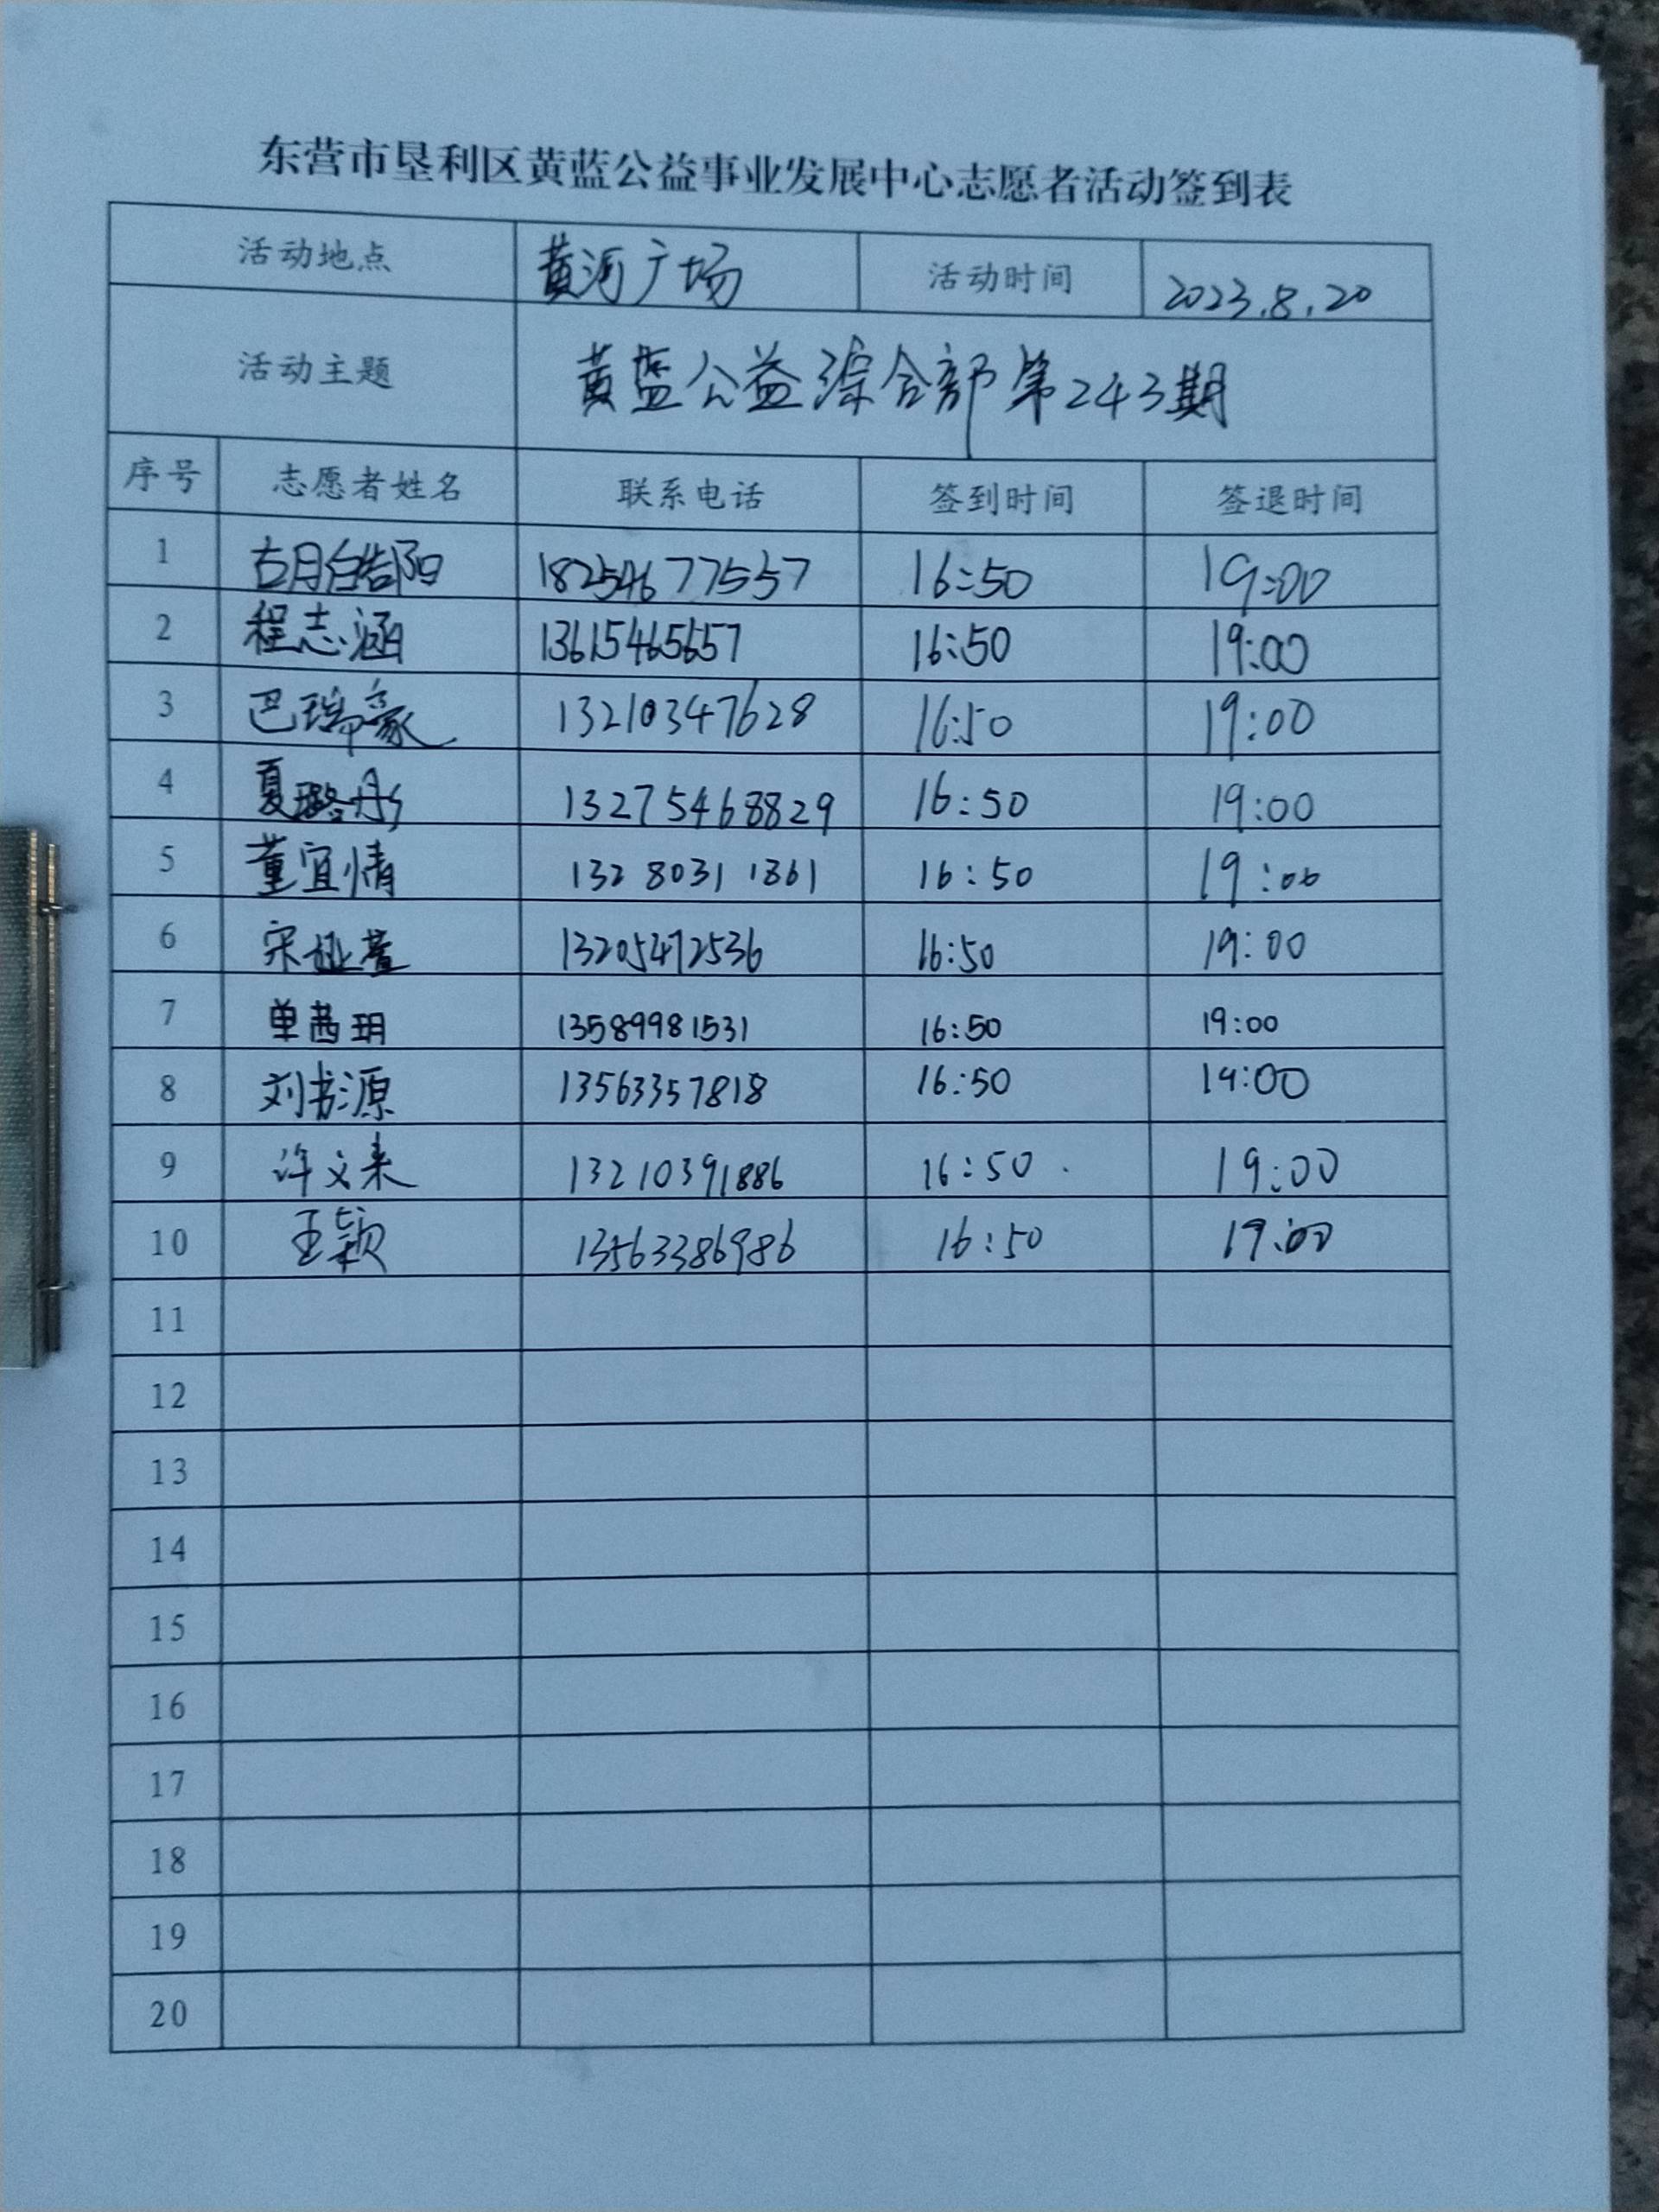 东营市垦利区黄蓝公益事业发展中心志愿者活动签到表
活动地点 黄河广场 活动时间 2023.8.20
活动主题 黄蓝公益综合部第243期
序号 志愿者姓名 联系电话 签到时间 签退时间
1 胡皓阳 18254677557 16:50 19:00
2 程志涵 13615465657 16:50 19:00
3 巴瑞豪 13210347628 16:50 19:00
4 夏璐彤 13275468829 16:50 19:00
5 董宜情 13280311361 16:50 19:00
6 宋 13205472536 16:50 19:00
7 单茜玥 13589981531 16:50 19:00
8 刘书源 13563357818 16:50 19:00
9 许文来 13210391886 16:50 19:00
10 王颖 13563386986 16:50 19:00
11
12
13
14
15
16
17
18
19
20